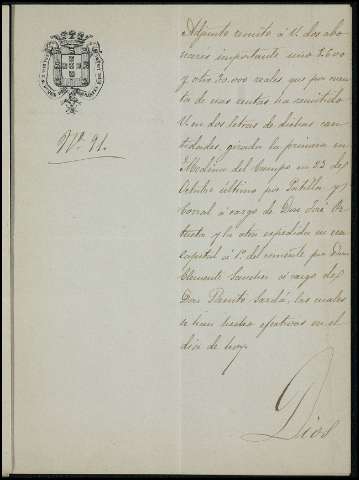 Nº 91.
Adjunto remito á U. dos abo-
narés importante uno 2.600
y otro 20.000 reales, que por cuen-
ta de mis rentas ha remitido
U. en dos letras de dichas can-
tidades, girada la primera en
Medina del Campo en 23 de
Octubre último por Padilla y
Corral á cargo de Don José Or-
tueta y la otra expedida en esa
capital á 1º. del corriente por Don
Clemente Sanchez á cargo de
Don Benito Sardá, las cuales
se han hecho efectivas en el
dia de hoy.
Dios